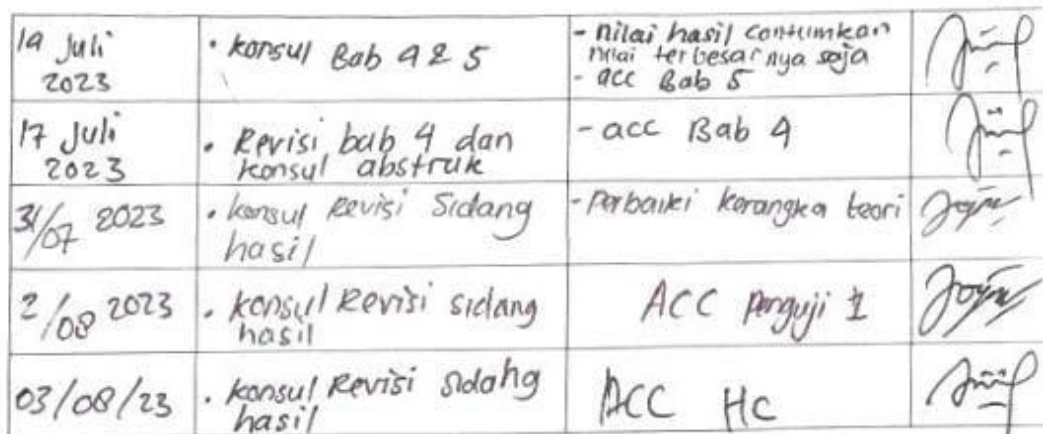 19 Juli
2023
• konsul Bab 4 & 5
- nilai hasil cantumkan
nilai terbesarnya saja
- acc Bab 5
17 Juli
2023
• Revisi bab 4 dan
konsul abstruk
- acc Bab 4
31/07 2023
• konsul Revisi Sidang
hasil
- Perbaiki kerangka teori
2/08 2023
• konsul Revisi sidang
hasil
ACC Penguji 1
03/08/23
• konsul Revisi sidang
hasil
ACC HC